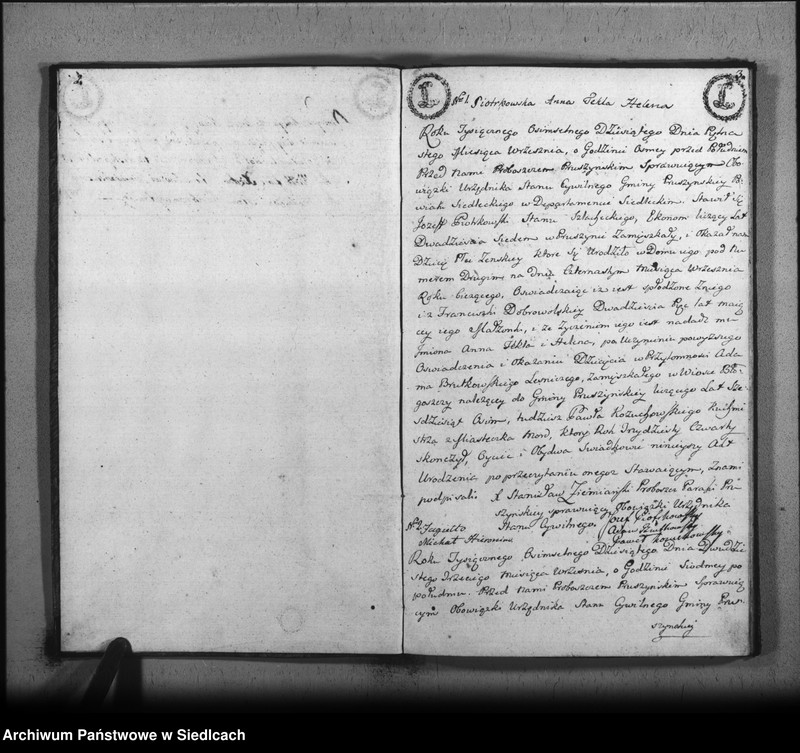 2.
3.
Nº1. Piotrkowska Anna Tekla Helena
Roku Tysiącznego Osimsetnego Dziesiątego Dnia Pietna
stego Miesiąca Września, o Godzinie Osmey przed Południem
Przed Nami Proboszczem Pruszyńskim Sprawuiącym Obo
wiązki Urzędnika Stanu Cywilnego Gminy Pruszyńskiey Po
wiatu Siedleckiego w Departamencie Siedleckim. Stawił się
Jozeff Piotrkowski Stanu Szlacheckiego, Ekonom liczący Lat
Dwadzieścia Siedem w Pruszynie Zamieszkały, i okazał nam
Dziecię Płci Zenskiey ktore się Urodziło w Domu iego pod Nu
merem Drugim na Dniu Czternastym Miesiąca Wrzesnia
Roku bieżącego, Oswiadczaiąc iz iest spłodzone Zniego
i z Franciszki Dobrowolskiey Dwadzieścia Pięc lat maią
cey iego Małzonki, i ze Zyczeniem iego iest nadadz mu
Jmiona Anna Tekla i Helena, po Uczynieniu powyższego
Oswiadczenia i Okazaniu Dziecięcia w Przytomnosci Ada
ma Brutkowskiego Lesniczego, Zamieszkałego w Wiosce Bło
gaszcy należącey do Gminy Pruszyńskiey liczącego Lat Sze
sdziesiąt Osim, tudzież Pawła Kozuchowskiego Kuchmi
strza z Miasteczka Mord, ktory Rok Trzydziesty Czwarty
skonczył, Oyciec i Obydwa Swiadkowie ninieyszy Akt
Urodzenia po przeczytaniu onegoz Stawaiącym, Znami
podpisali X Stanisław Ziemiański Proboszcz Parafi Pru
szyńskiey sprawuiący Obowiązki Urzędnika
Stanu Cywilnego. Jozef Piotrkowski
Adam
Paweł Kozuchowski
Nº2.
Michał Hieronim
Roku Tysiącznego Osimsetnego Dziesiątego Dnia Dwudzie
stego Trzeciego Miesiąca Września, o Godzinie Siodmey po
południu. Przed Nami Proboszczem Pruszyńskim Sprawuią
cym Obowiązki Urzędnika Stanu Cywilnego Gminy Prus-
szynskiej
Archiwum Państwowe w Siedlcach